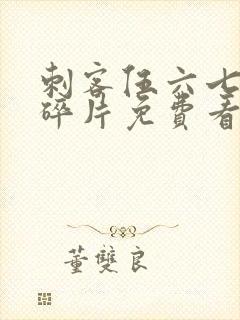 刺客伍六七
碎片免费看
董雙良